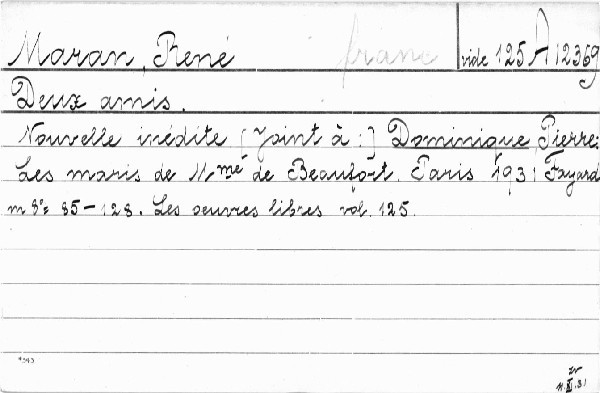 Maran, René franc vide 125 A 12369
Deux amis.
Nouvelle inédite [Joint à:] Dominique, Pierre:
Les maris de Mme de Beaufort. Paris 1931 Fayard
m 8° 85-128. Les oeuvres libres vol. 125.